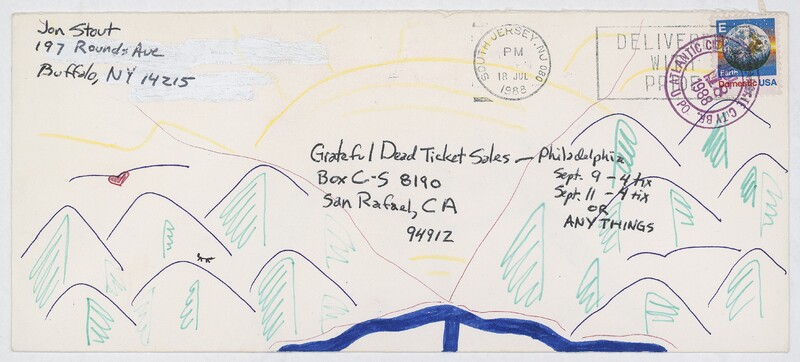 Jon Stout
197 Rounds Ave
Buffalo, NY 14215
SOUTH JERSEY, NJ 080
PM
18 JUL
1988
DELIVERED
WITH
PRIDE
E
Earth
Domestic USA
ATLANTIC CITY
1988
Grateful Dead Ticket Sales – Philadelphia
Box C-S 8190
San Rafael, CA
94912
Sept. 9 – 4 tix
Sept. 11 – 4 tix
OR
ANYTHINGS